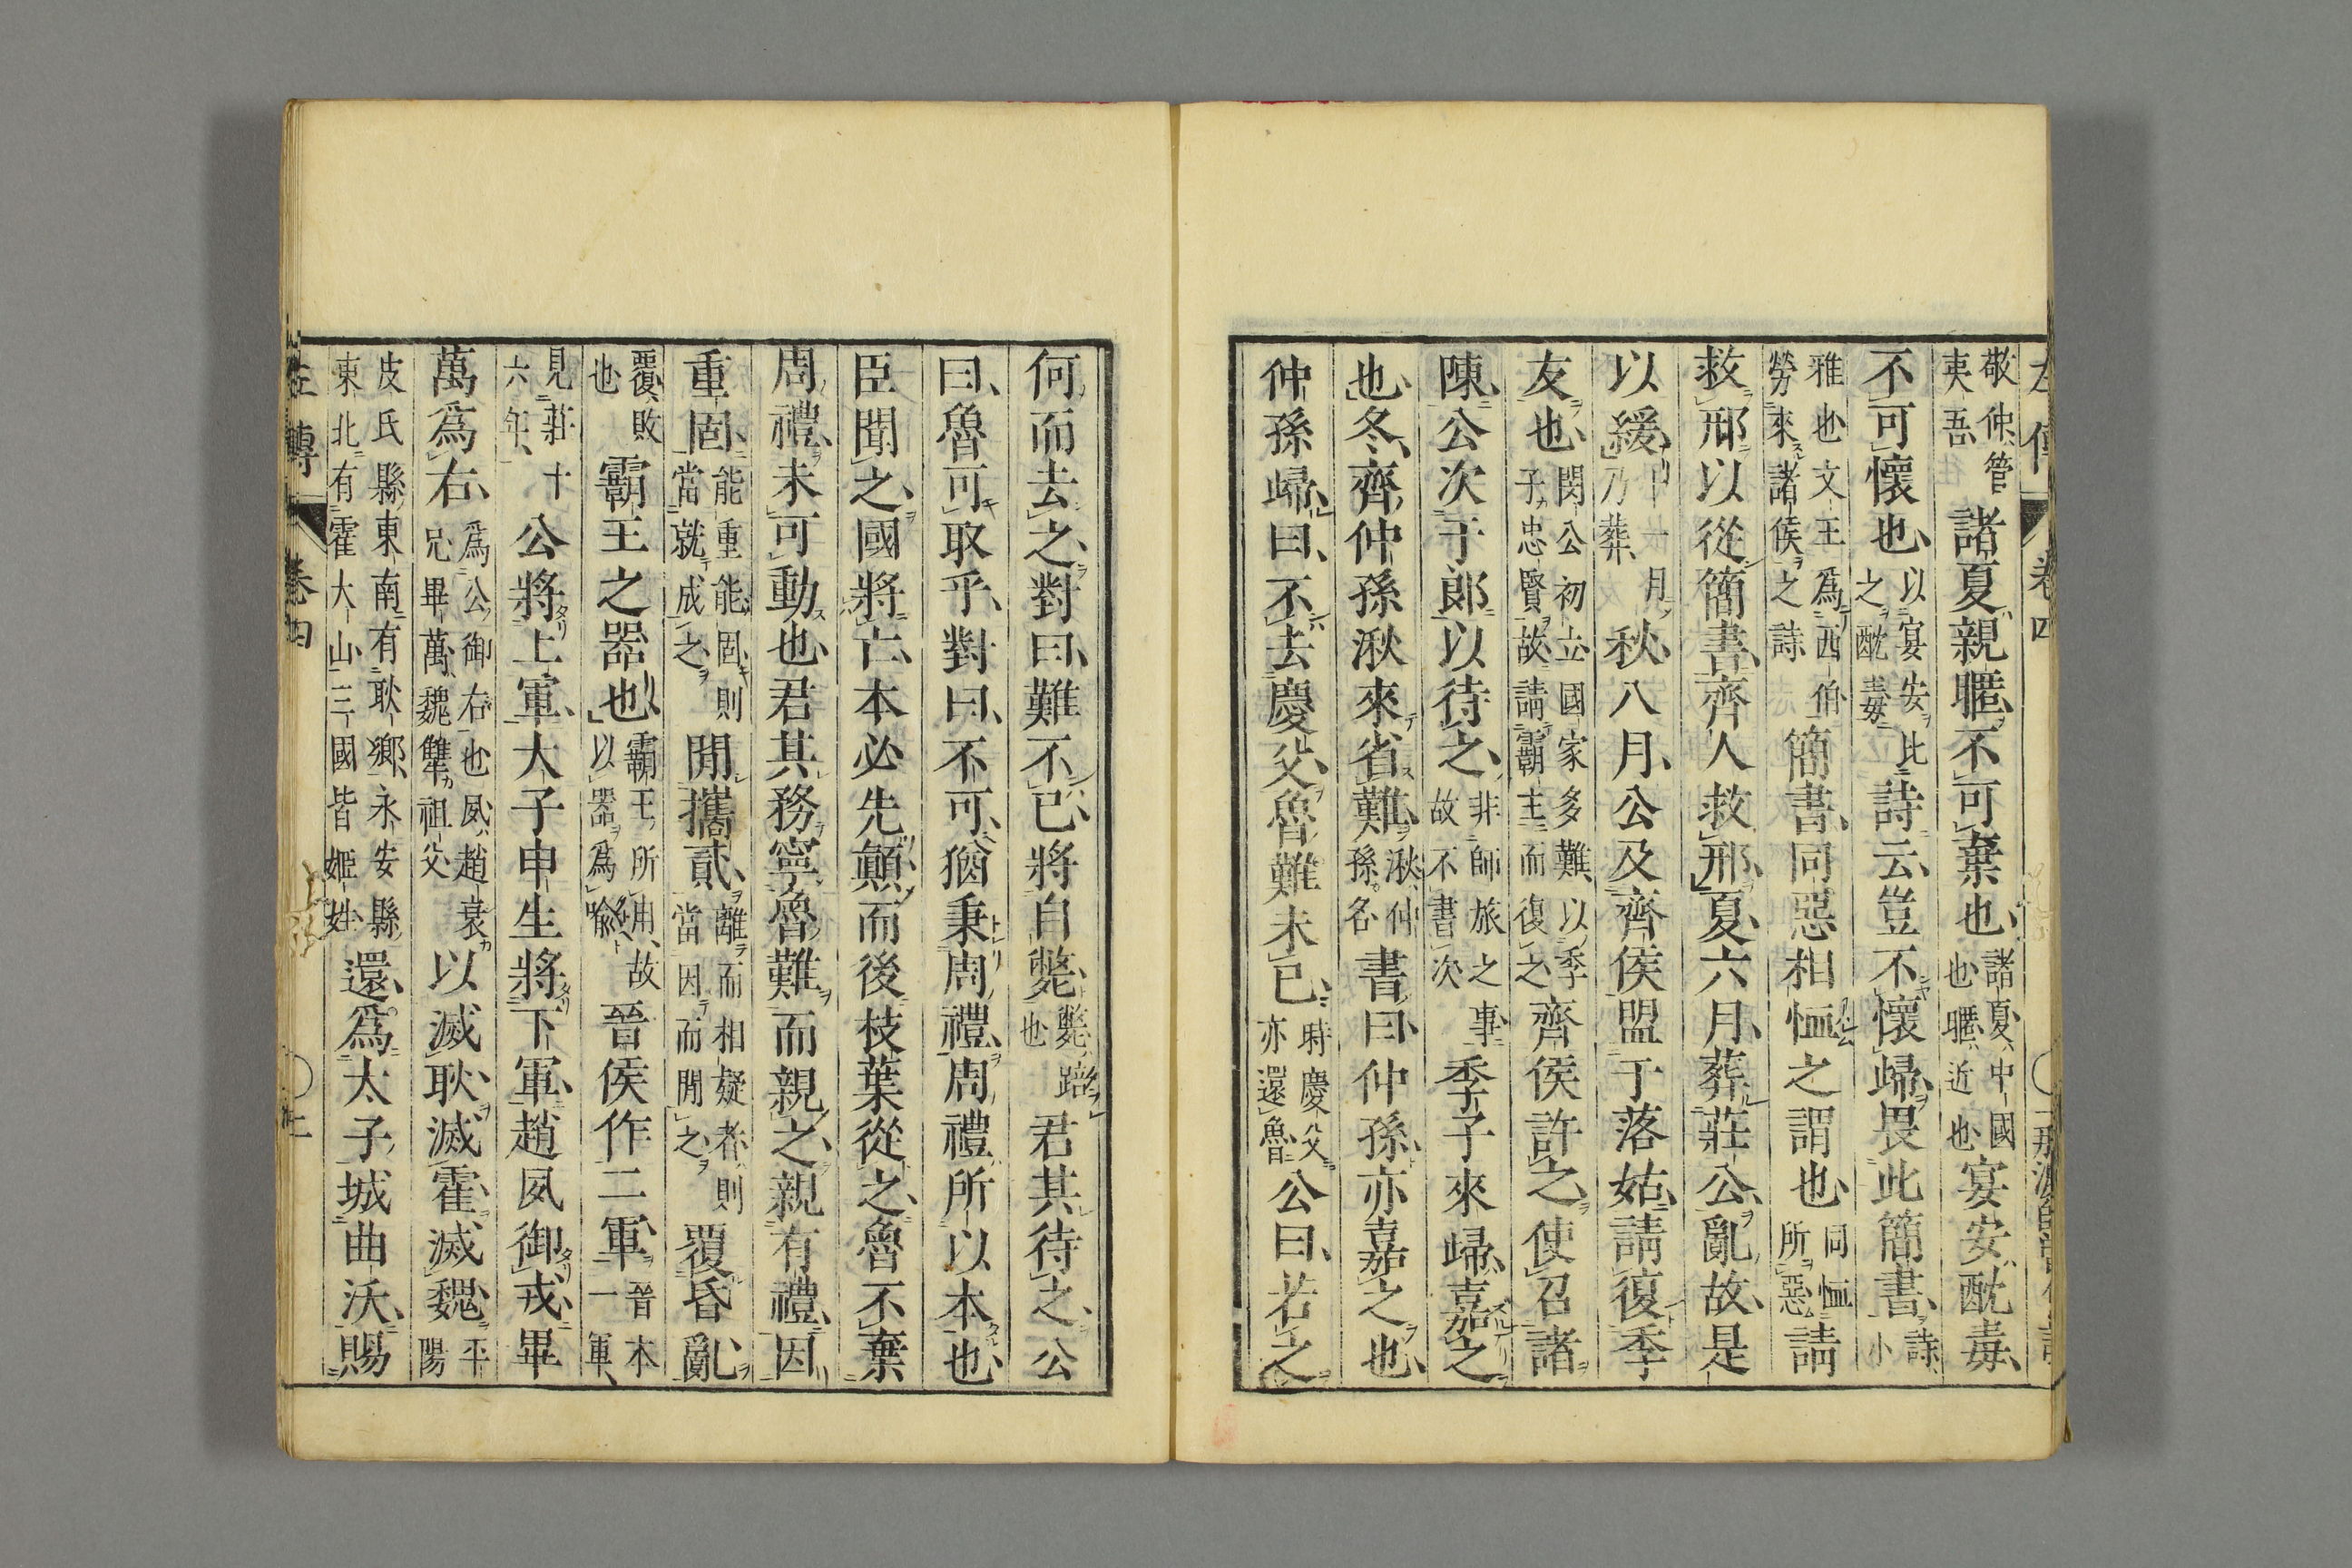 敬仲管夷吾諸夏親暱不可棄也諸夏中國也暱近也宴安酖毒
不可懷也以宴安比之酖毒詩云豈不懷歸畏此簡書詩小
雅也文王爲西伯勞來諸侯之詩簡書同惡相恤之謂也同恤所惡請
救邢以從簡書齊人救邢夏六月葬莊公亂故是
以緩十一月乃葬秋八月公及齊侯盟于落姑請復季
友也閔公初立國家多難以季子忠賢故請霸主而復之齊侯許之使召諸
陳公次于郎以待之非師旅之事故不書次季子來歸嘉之
也冬齊仲孫湫來省難湫仲孫名書曰仲孫亦嘉之也
仲孫歸曰不去慶父魯難未已時慶父亦還魯公曰若之
何而去之對曰難不已將自斃斃踣也君其待之公
曰魯可取乎對曰不可猶秉周禮周禮所以本也
臣聞之國將亡本必先顛而後枝葉從之魯不棄
周禮未可動也君其務寧魯難而親之親有禮因
重固能重能固則當就成之閒攜貳離而相疑者則當因而閒之覆昏亂
覆敗也霸王之器也霸王所用故以器爲喻晉侯作二軍晉本一軍
見莊十六年公將上軍大子申生將下軍趙夙御戎畢
萬爲右爲公御右也夙趙衰兄畢萬魏犨祖父以滅耿滅霍滅魏平陽
皮氏縣東南有耿鄉永安縣東北有霍大山三國皆姬姓還爲太子城曲沃賜
左傳 卷四